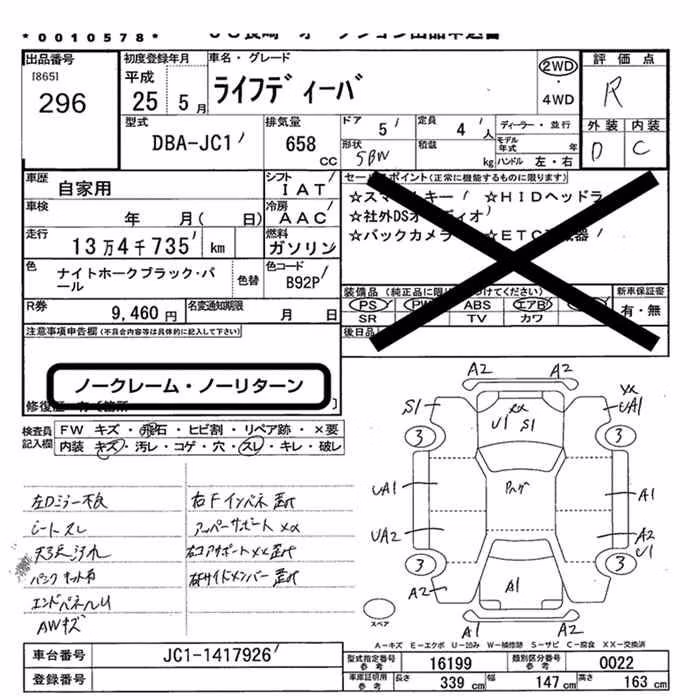 *0010578*
出品番号
[865]
296
初度登録年月
平成
25 5月
車名・グレード
ライフディーバ
2WD
・
4WD
評価点
R
外装 内装
D C
型式
DBA-JC1
排気量
658
cc
ドア
5
定員
4 人
形状
5BW
積載
kg
ディーラー・並行
モデル年式 年
ハンドル 左・右
車歴
自家用
シフト
IAT
車検
年 月( 日)
冷房
AAC
走行
13万4千735 km
燃料
ガソリン
色
ナイトホークブラック・パール
色替
色コード
B92P
R券
9,460 円
名変通知期限
月 日
セールスポイント(正常に機能するものに限ります)
☆スマートキー ☆HIDヘッドラ
☆社外DSオーディオ
☆バックカメラ ☆ETC車載器
装備品
PS PW ABS エアB
SR TV カワ
新車保証書
有・無
後日品
注意事項申告欄(不具合内容等は具体的に記入して下さい)
ノークレーム・ノーリターン
検査員記入欄
FW キズ・飛石・ヒビ割・リペア跡・×要
内装 キズ・汚レ・コゲ・穴・スレ・キレ・破レ
左Dミラー不良
シートスレ
天張汚れ
パンクキット有
エンドパネルU
AWキズ
右Fインパネ歪
アッパーサポートXX
右コアサポートXX歪
右サイドメンバー歪
A2 A2
S1
XX
UA1
XX
U1 S1
3 3
UA1
A1
UA2
A2
U1
3 3
A2
A1
A1 A2
スペア
A-キズ E-エクボ U-凹み W-補修跡 S-サビ C-腐食 XX-交換済
車台番号
JC1-1417926
登録番号
型式指定番号
参考
16199
類別区分番号
参考
0022
車庫証明用
参考
長さ
339 cm
幅
147 cm
高さ
163 cm